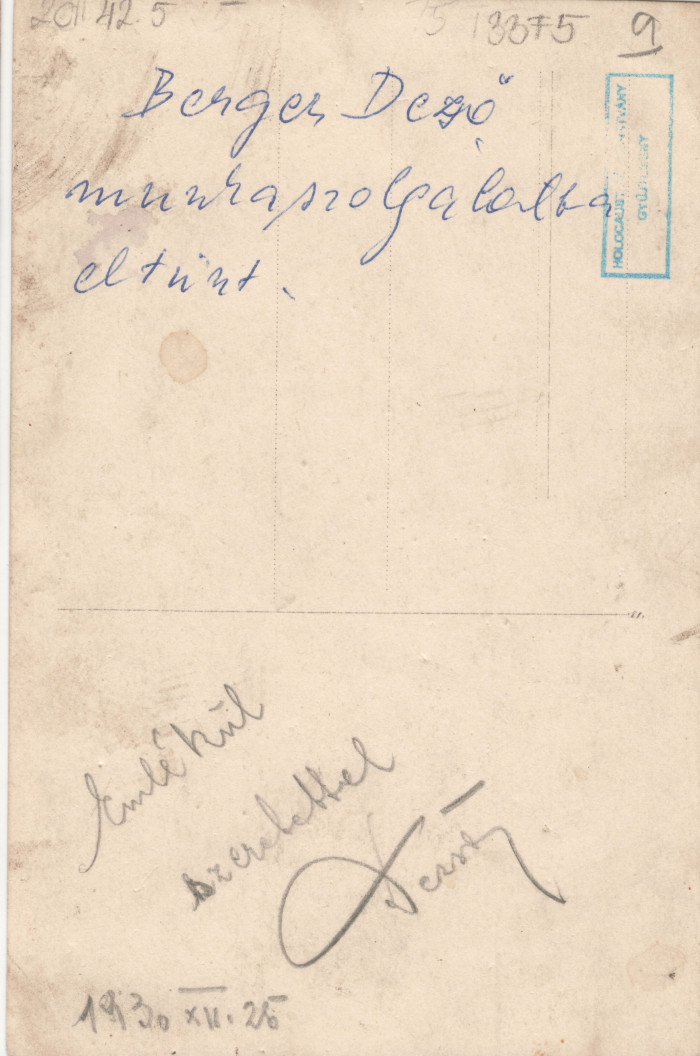 2011 42.5
13375
9
Berger Dezső
munkaszolgálatba
eltünt.
HOLOCAUST
GYŰJTEMÉNY
Emlékül
szeretettel
Dezső
1930 XII. 25